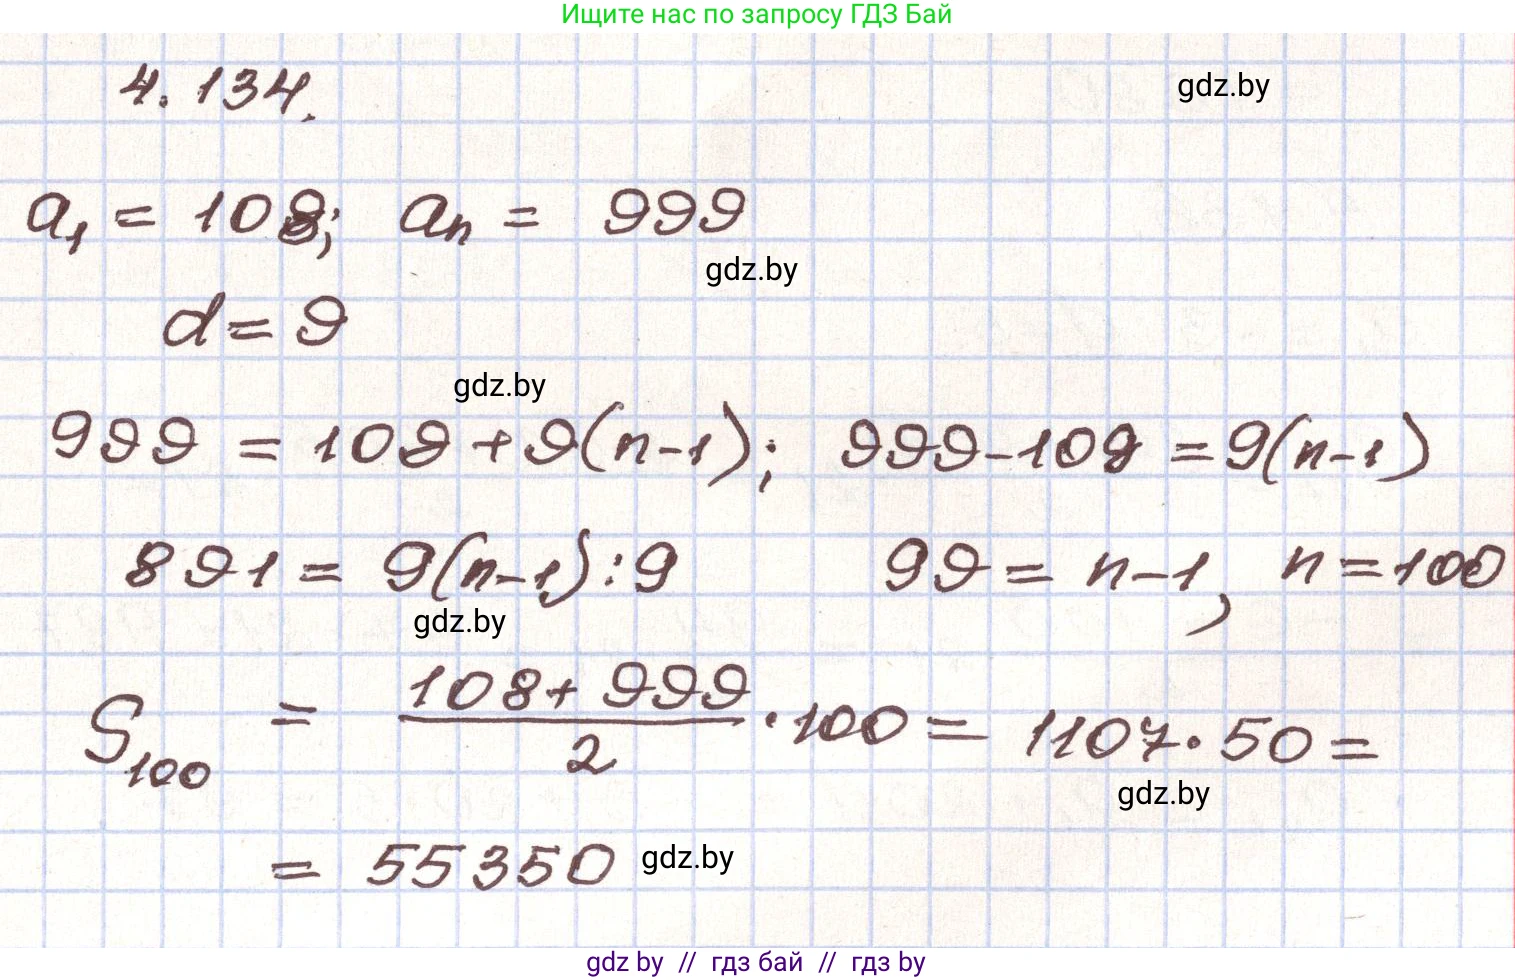 Ищите нас по запросу ГДЗ Бай
4.134.
gdz.by
a₁ = 108; aₙ = 999
gdz.by
d = 9
gdz.by
999 = 108 + 9(n-1); 999-108 = 9(n-1)
891 = 9(n-1) :9 99 = n-1, n=100
gdz.by
S₁₀₀ = (108+999)/2 · 100 = 1107 · 50 =
gdz.by
= 55350 gdz.by
gdz by // гдз бай // гдз by